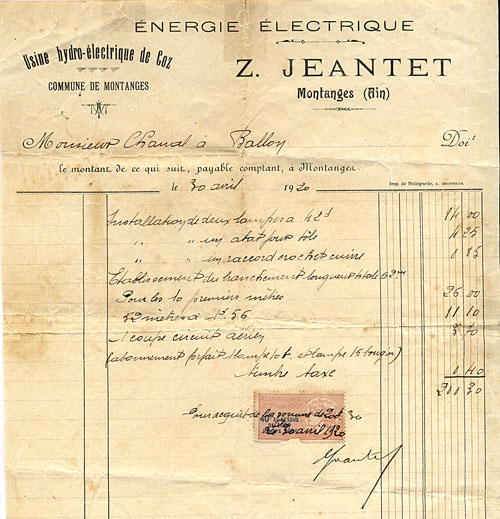 ÉNERGIE ÉLECTRIQUE
Usine hydro-électrique de Coz
COMMUNE DE MONTANGES
Z. JEANTET
Montanges (Ain)
Monsieur Chanal à Ballon Doit
le montant de ce qui suit, payable comptant, à Montanges.
le 30 avril 1920
Imp. de Bellegarde, A.
Installation de deux lampes à 42f 84 00
" " un abat jour tôle 4 25
" " un raccord crochet cuivre 0 85
Etablissement des branchement longueur totale 62m
Pour les 10 premiers mètres 26 00
52 mètres à 1f 56
1 coupe circuit aérien
(abonnement forfait 1 lampe 10 b. et 1 lampe 15 bougies)
timbre taxe 0 40
201 30
Pour acquit de la somme de 201 30
le 30 avril 1920
Jeantet